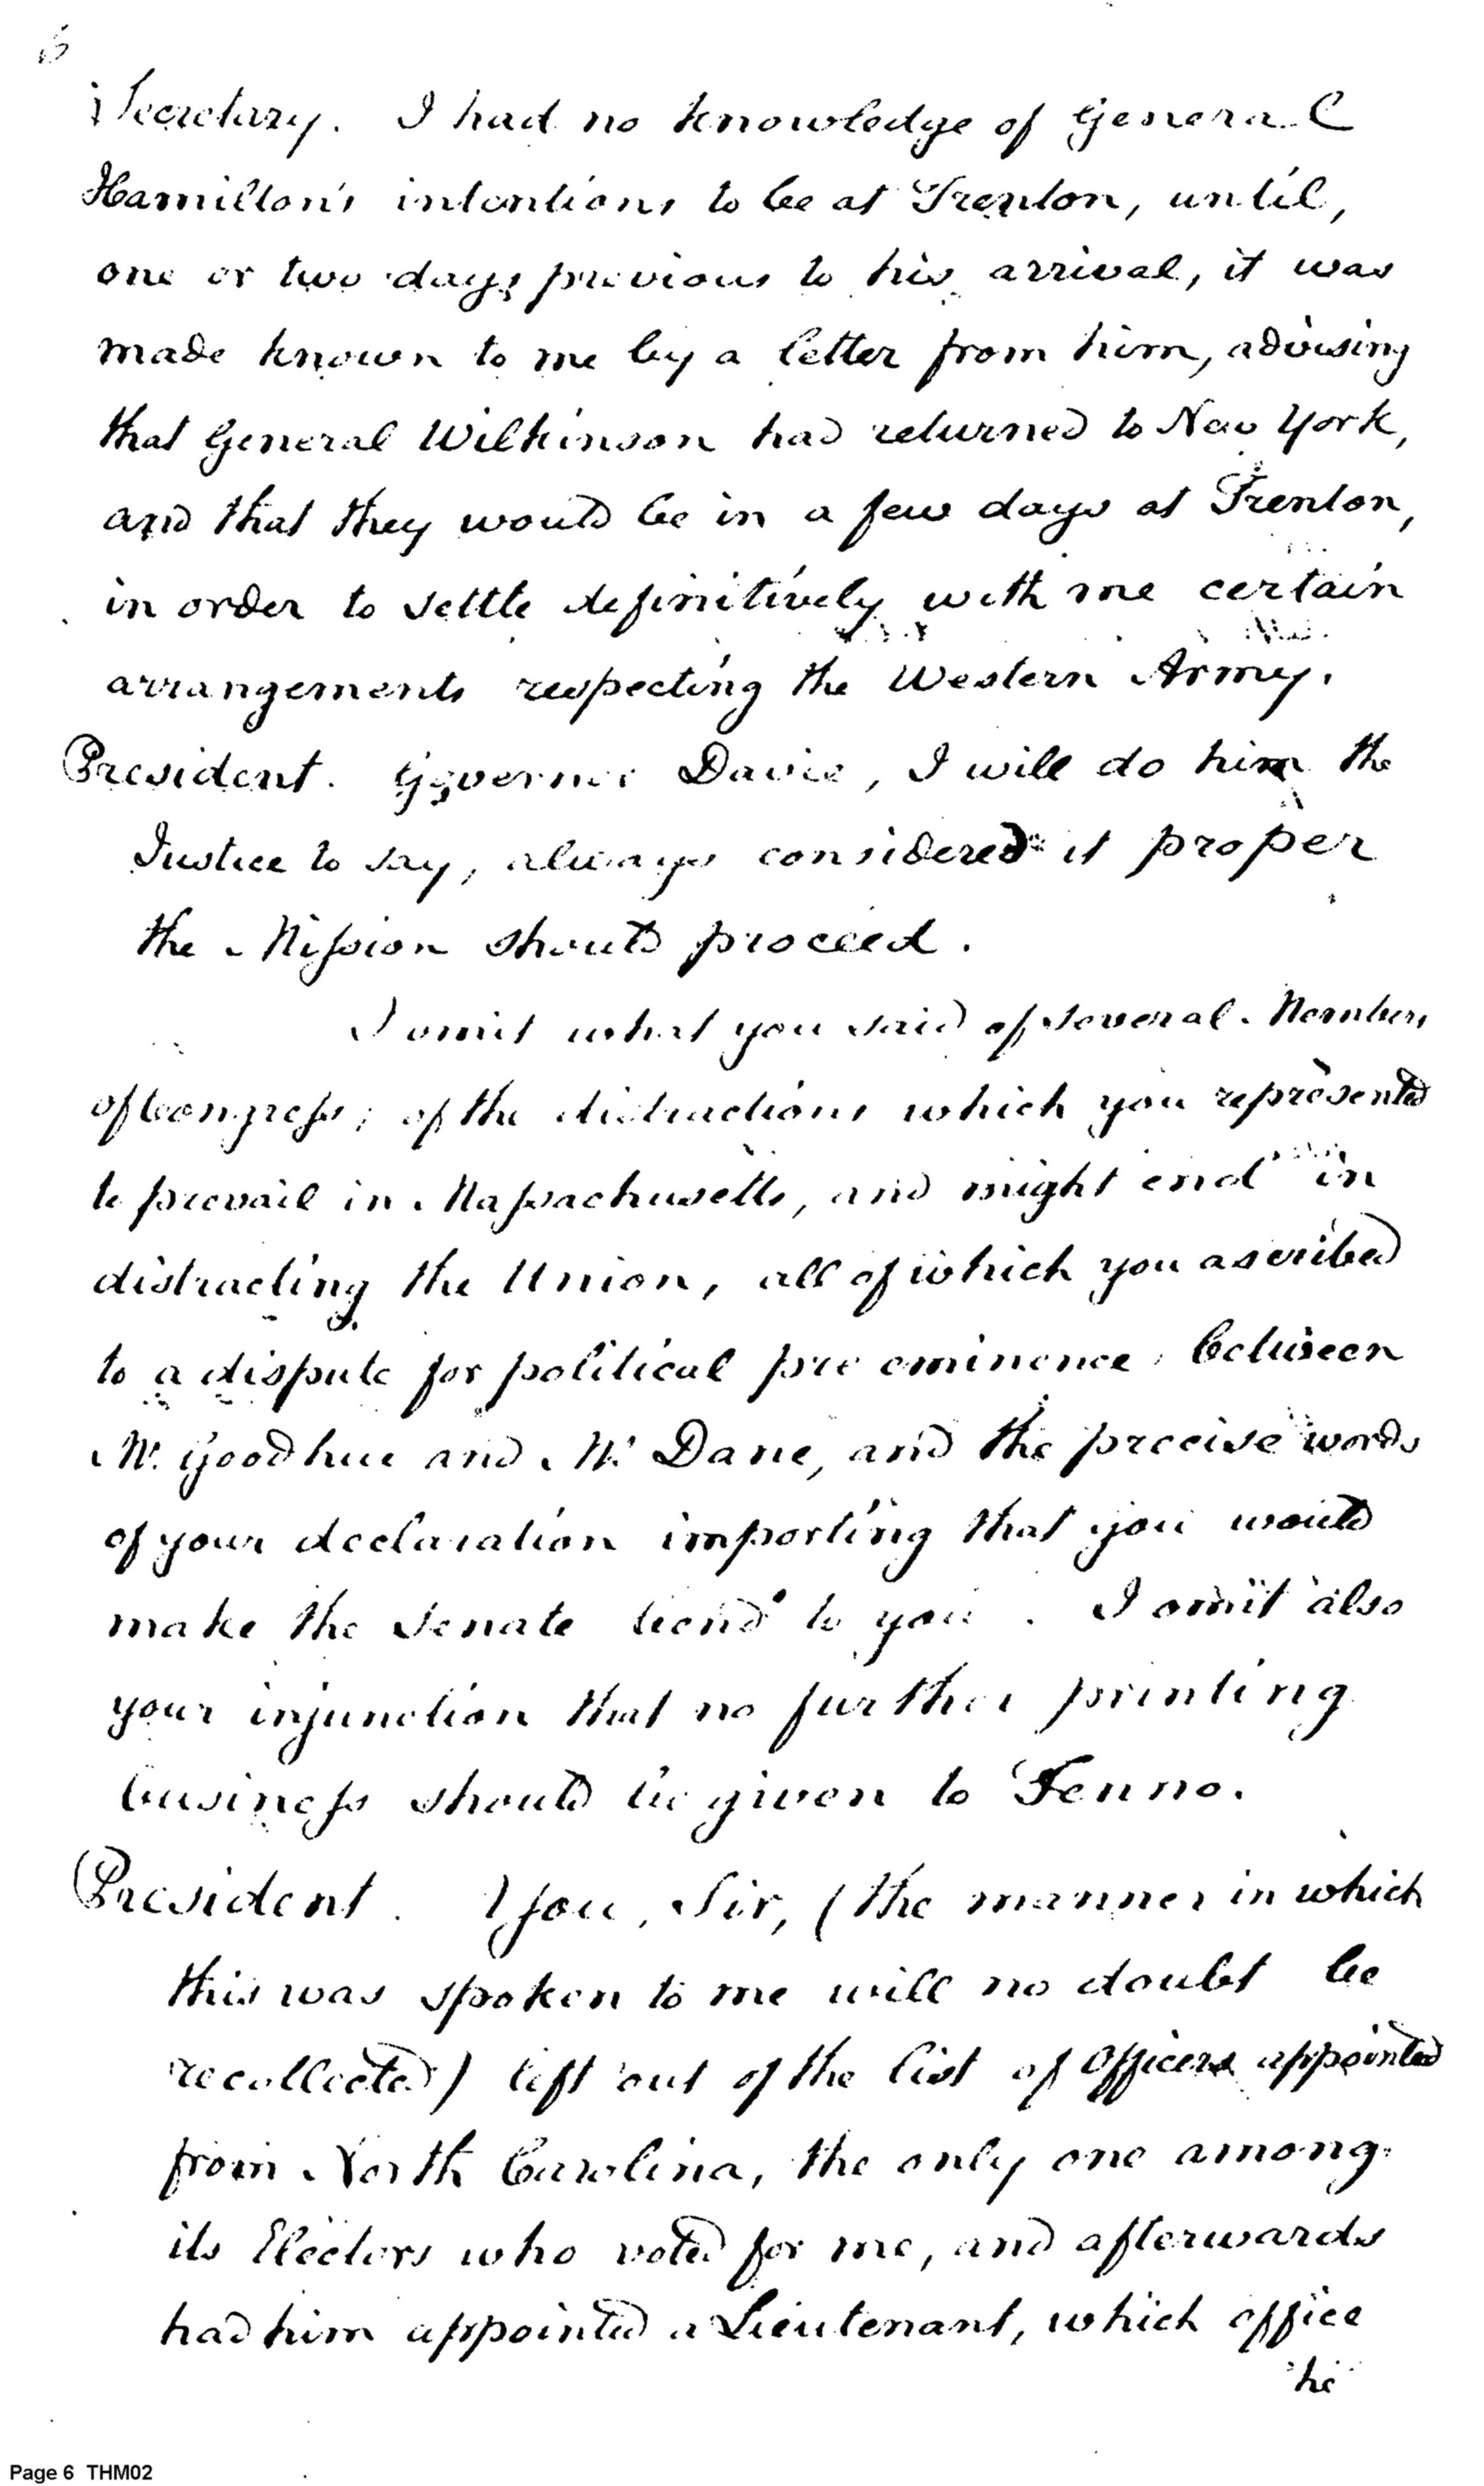 6
Secretary. I had no knowledge of General
Hamilton's intentions to be at Trenton, until,
one or two days previous to his arrival, it was
made known to me by a letter from him, advising
that General Wilkinson had returned to New York,
and that they would be in a few days at Trenton,
in order to settle definitively with me certain
arrangements respecting the Western Army.
President. Governor Davie, I will do him the
Justice to say, always considered it proper
the Mission should proceed.
I omit what you said of several Members
of Congress; of the distractions which you represented
to prevail in Massachusetts, and might end in
distracting the Union, all of which you ascribed
to a dispute for political pre eminence, between
Mr. Goodhue and Mr. Dane, and the precise words
of your declaration importing that you would
make the Senate bend to you. I omit also
your injunction that no further printing
business should be given to Fenno.
President. You, Sir, (the manner in which
this was spoken to me will no doubt be
recollected) left out of the list of Officers appointed
from North Carolina, the only one among
its Electors who voted for me, and afterwards
had him appointed a Lieutenant, which office
he
Page 6 THM02